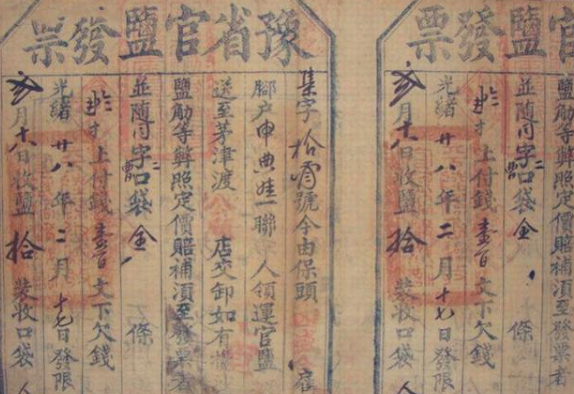 豫省官鹽發票
集字拾號今由保頭
腳户申典娃一聯 人領運官鹽
送至茅津渡 店交卸如有
鹽觔等弊照定價賠補須至發票者
並隨 字口袋 條
上付錢壹百文下欠錢
光緒廿八年二月十七日發限
月十八日收鹽拾 裝收口袋
官鹽發票
鹽觔等弊照定價賠補須至發票者
並隨 字口袋 條
上付錢壹百文下欠錢
光緒廿八年二月十七日發限
月十八日收鹽拾 裝收口袋